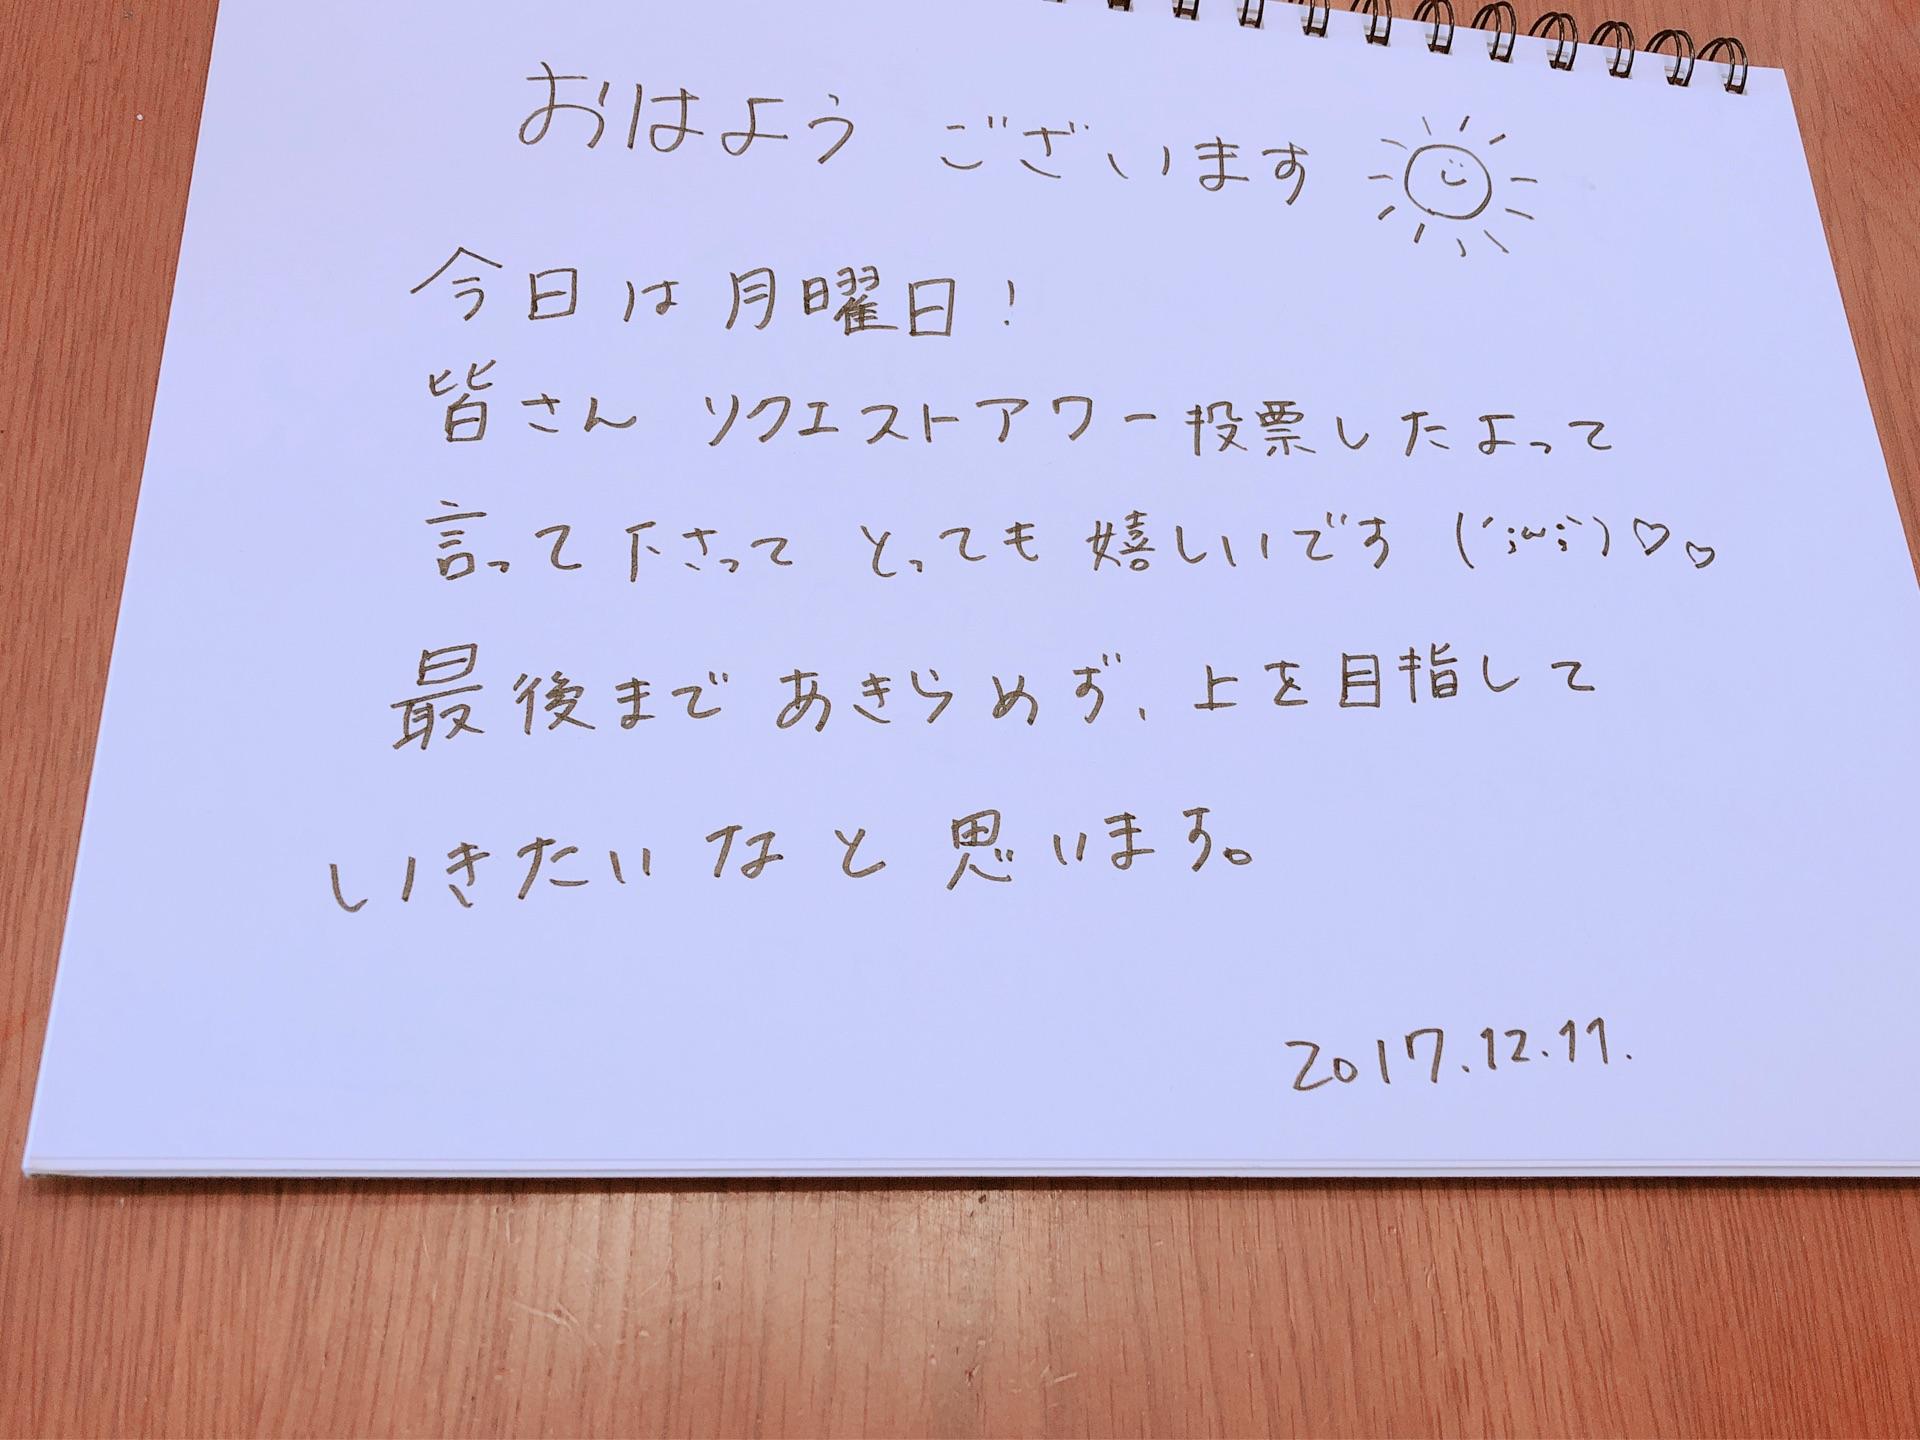 おはよう ございます
今日は月曜日!
皆さん リクエストアワー投票したよって
言って下さって とっても 嬉しいです (´;ω;`)♡♡
最後まで あきらめず、上を目指して
いきたいなと思います。
2017.12.11.